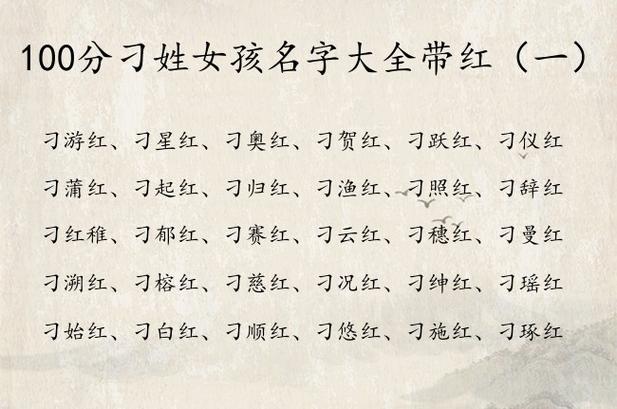 100分刁姓女孩名字大全带红（一）
刁游红、刁星红、刁奥红、刁贺红、刁跃红、刁仪红
刁蒲红、刁起红、刁归红、刁渔红、刁照红、刁辞红
刁红稚、刁郁红、刁赛红、刁云红、刁穗红、刁曼红
刁溯红、刁榕红、刁慈红、刁况红、刁绅红、刁瑶红
刁始红、刁白红、刁顺红、刁悠红、刁施红、刁琢红